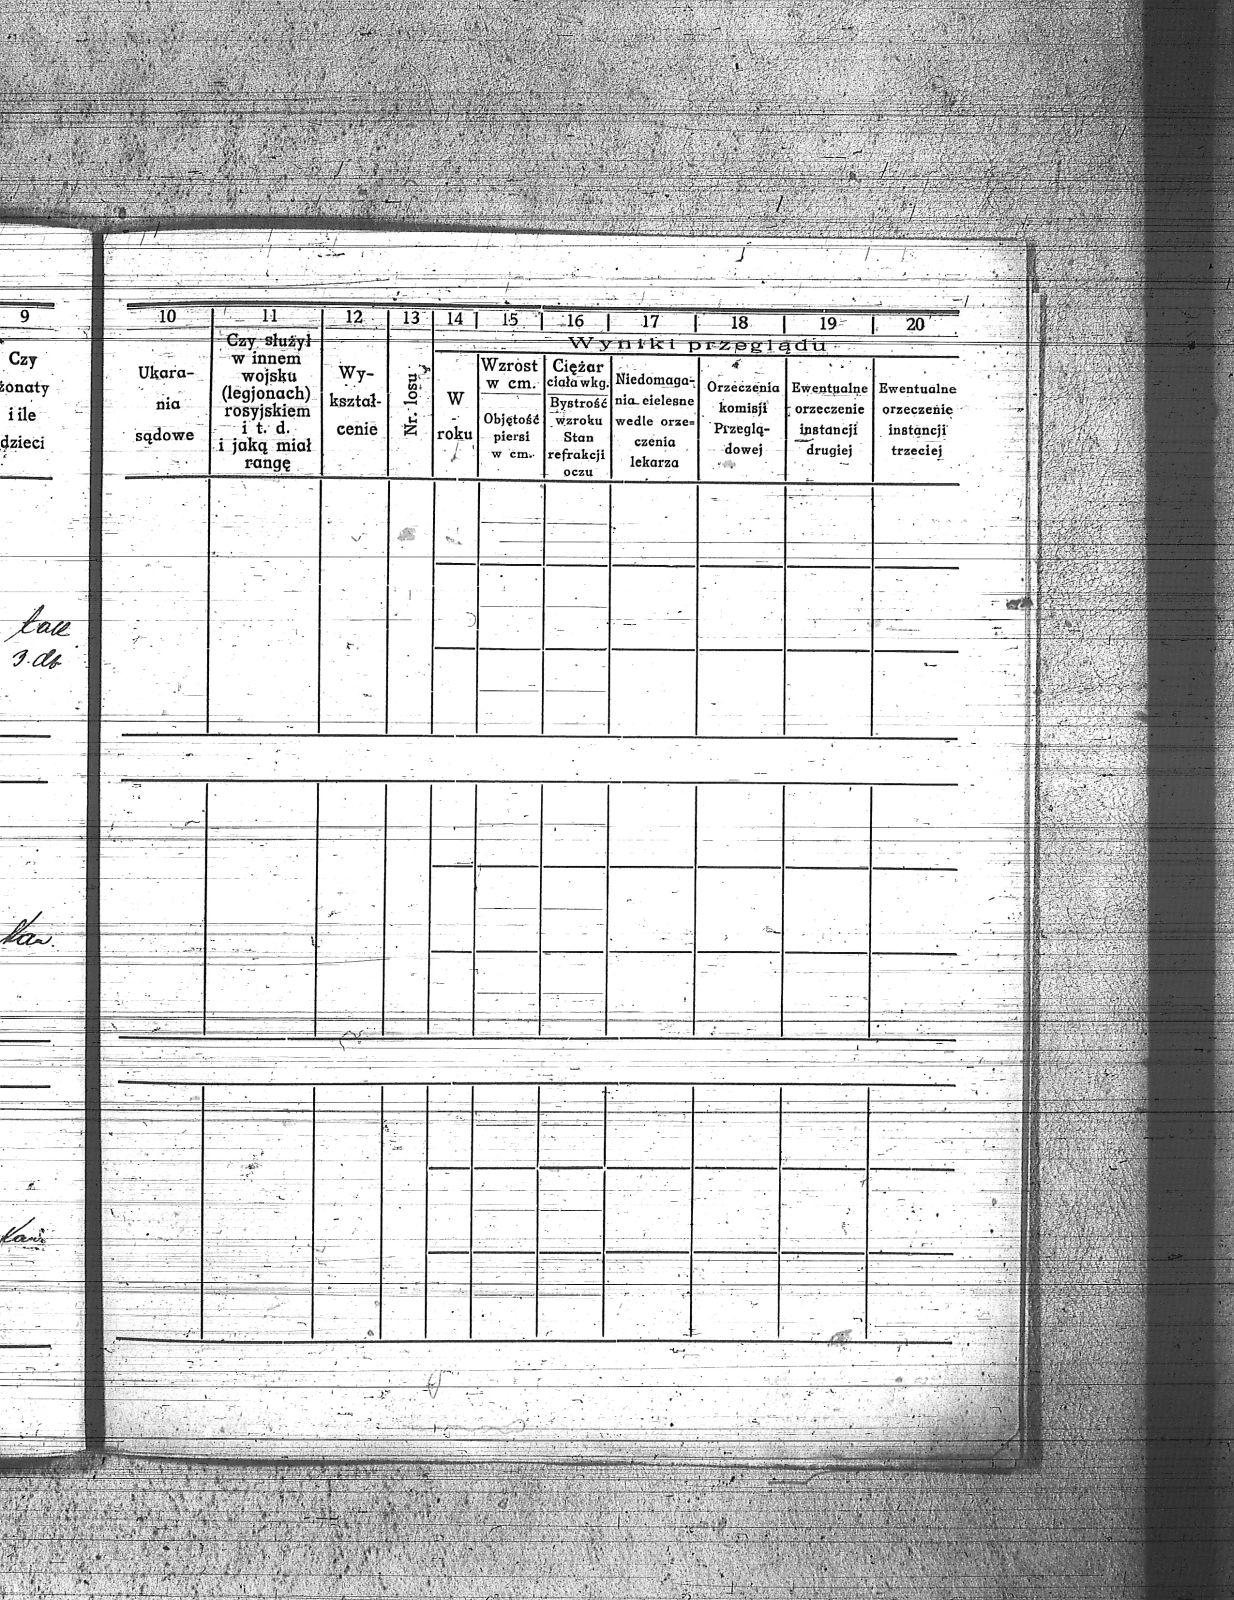 9
Czy
żonaty
i ile
dzieci
tak
3. dz
Kaw.
Kaw.
10
Ukara-
nia
sądowe
11
Czy służył
w innem
wojsku
(legjonach)
rosyjskiem
i t. d.
i jaką miał
rangę
12
Wy-
kształ-
cenie
13
Nr. losu
Wyniki przeglądu
14
W
roku
15
Wzrost
w cm.
Objętość
piersi
w cm.
16
Ciężar
ciała w kg.
Bystrość
wzroku
Stan
refrakcji
oczu
17
Niedomaga-
nia cielesne
wedle orze=
czenia
lekarza
18
Orzeczenia
komisji
Przeglą-
dowej
19
Ewentualne
orzeczenie
instancji
drugiej
20
Ewentualne
orzeczenie
instancji
trzeciej